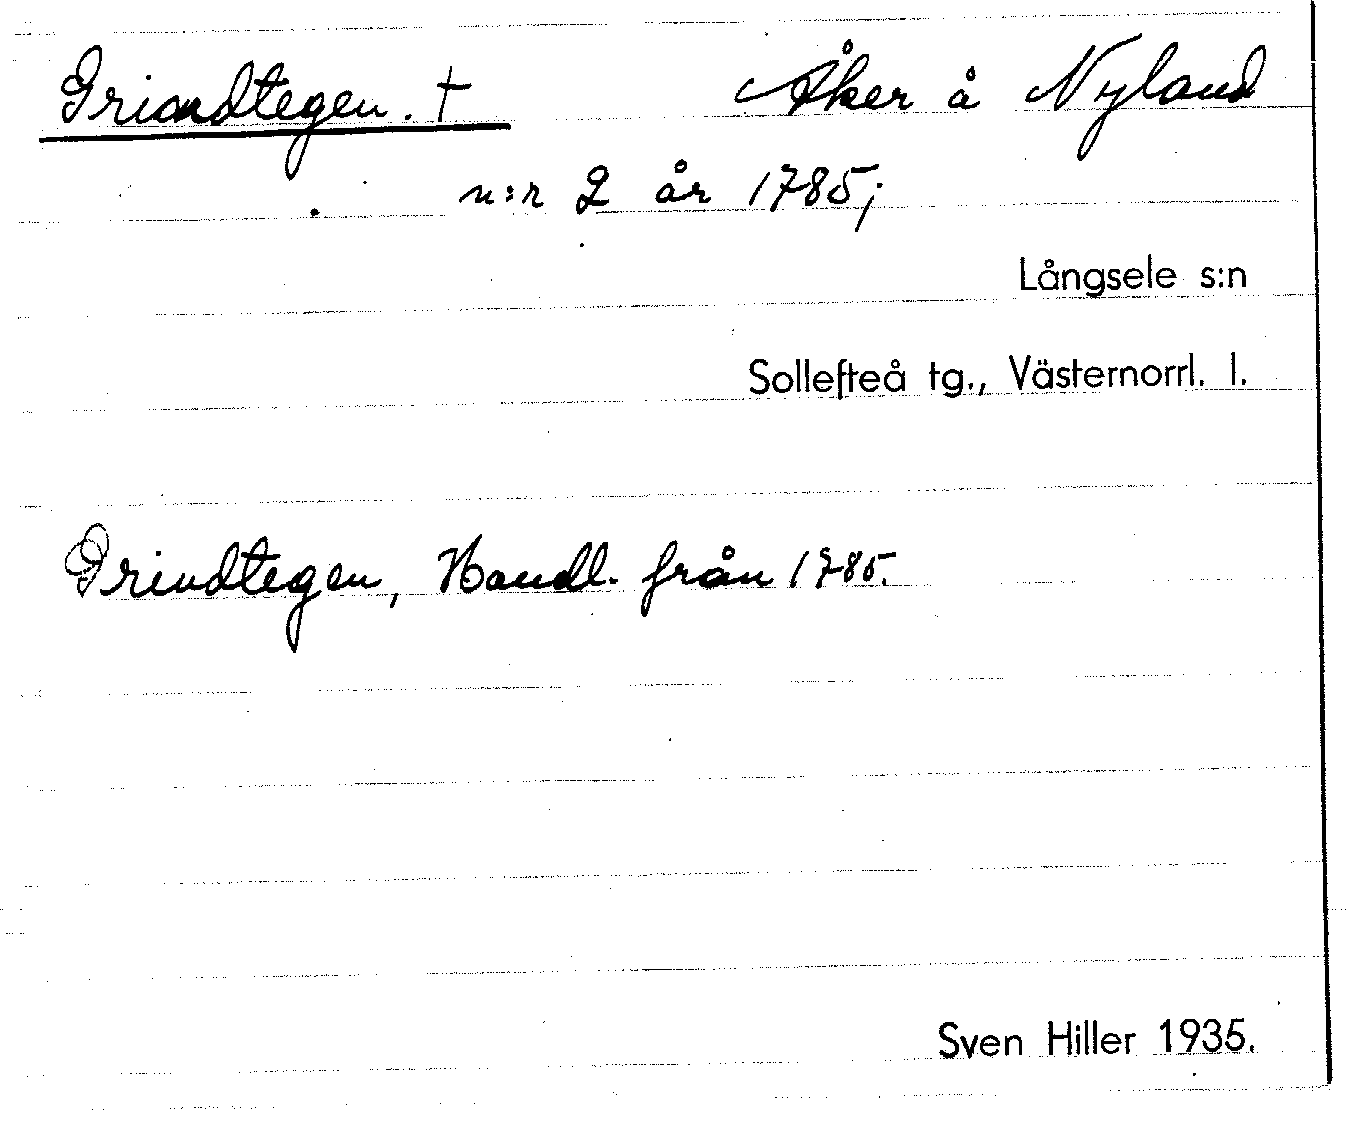 Grindtegen. † Åker å Nyland
n:r 2 år 1785;
Långsele s:n
Sollefteå tg., Västernorrl. l.
Grindtegen, Handl. från 1785.
Sven Hiller 1935.